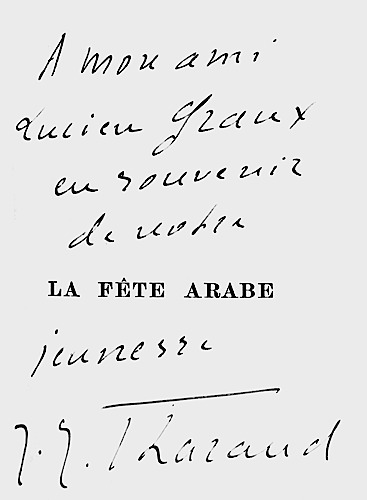 A mon ami
Lucien Graux
en souvenir
de notre
LA FÊTE ARABE
jeunesse
J. J. Tharaud